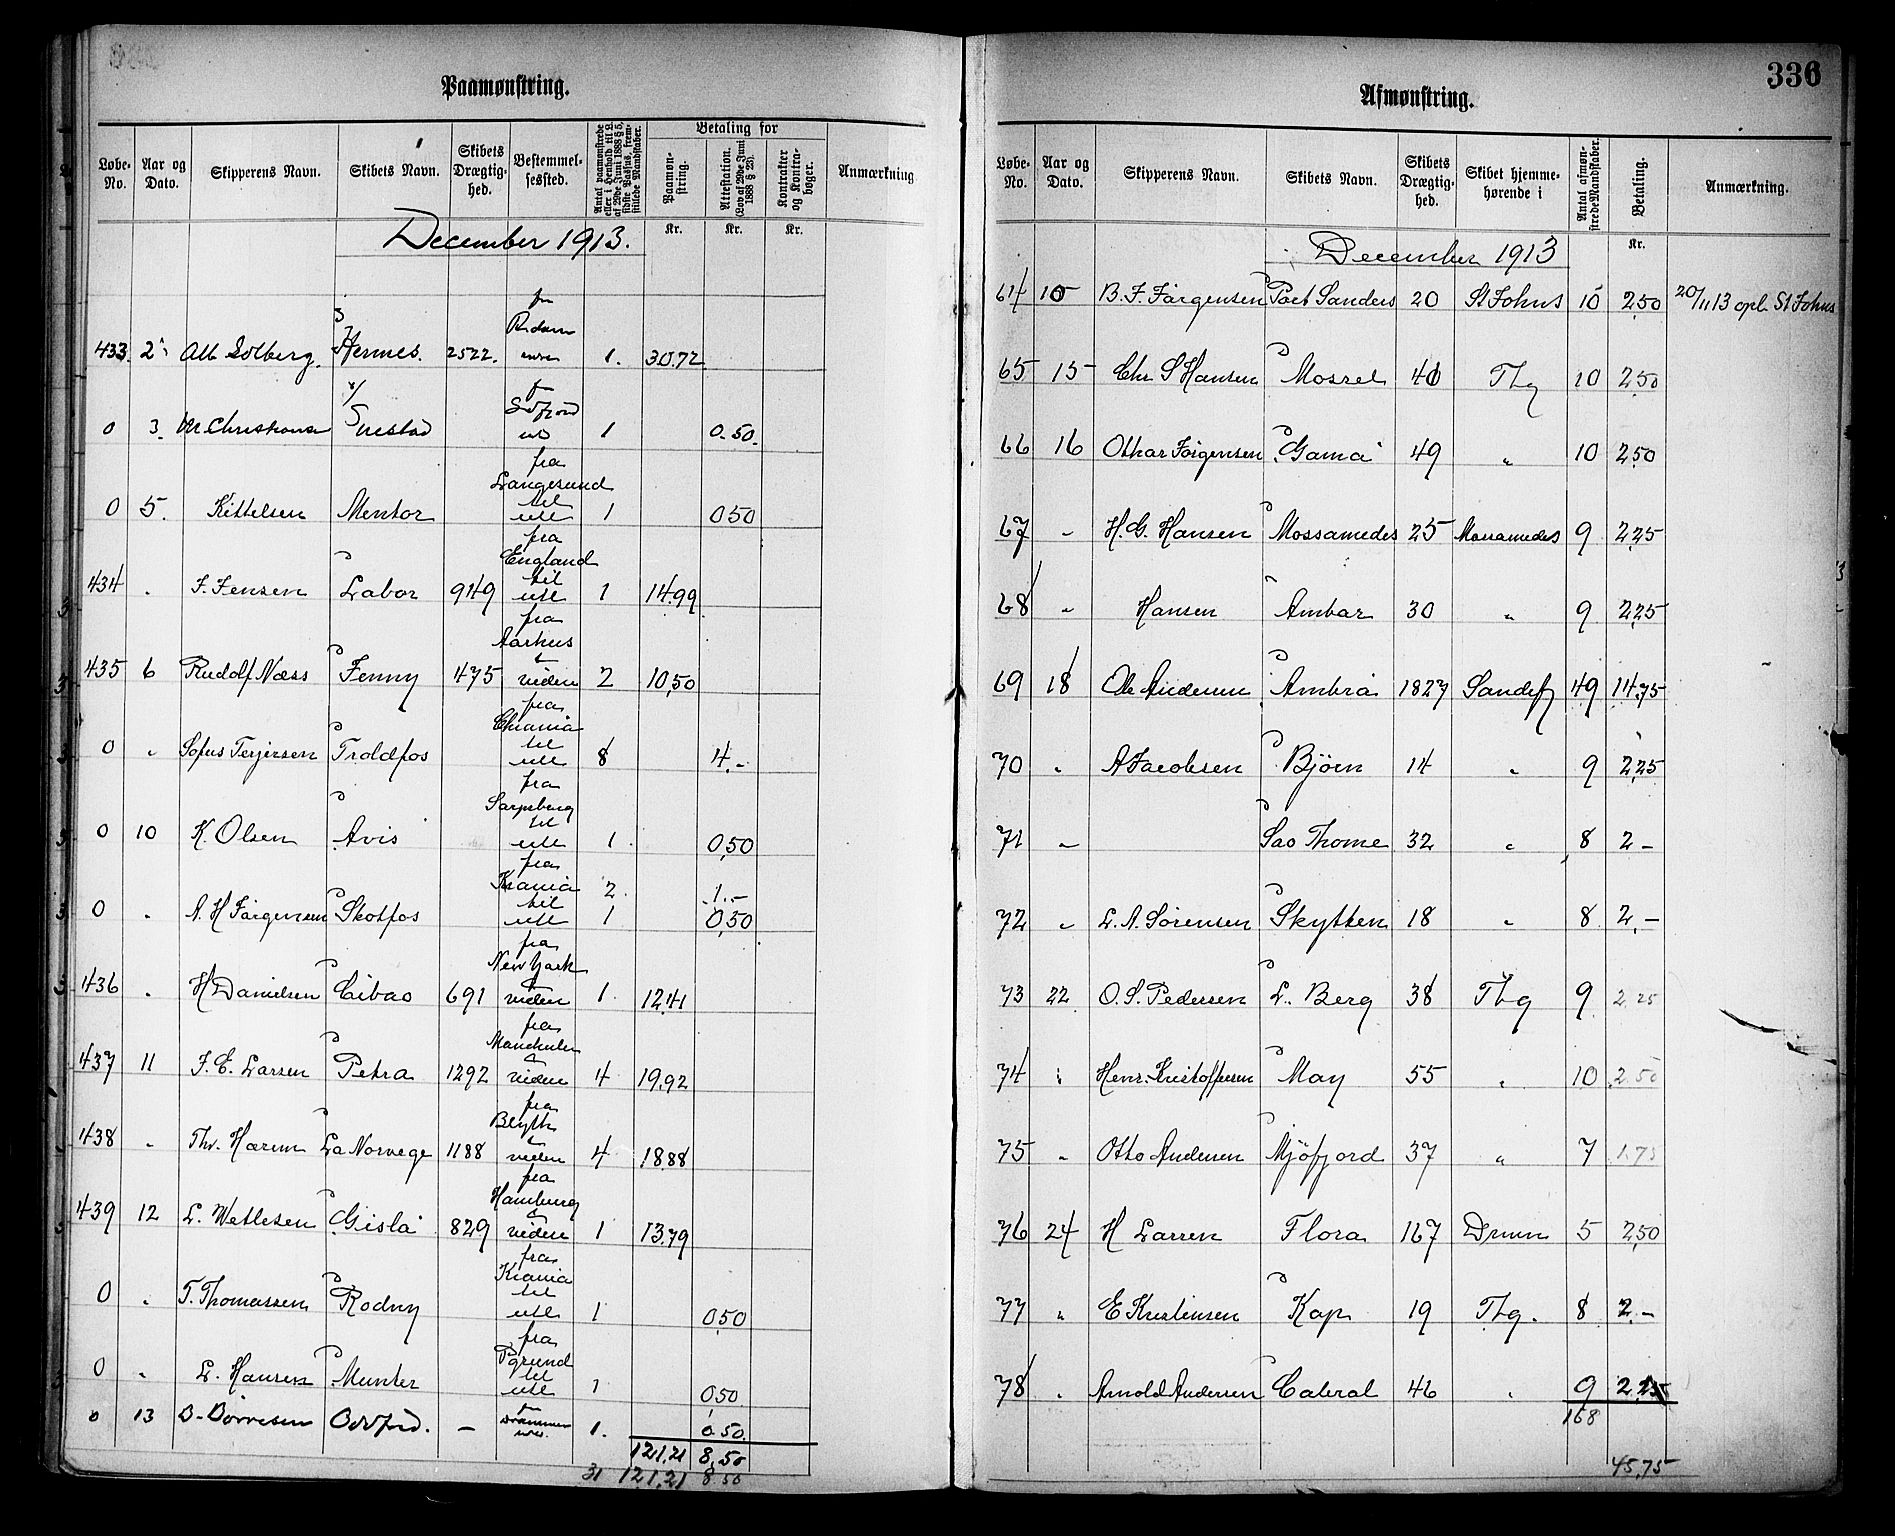 Paamønstring.
Løbe-No. Aar og Dato. Skipperens Navn. Skibets Navn. Skibets Drægtig-hed. Bestemmel-sessted. Antal paamønstrede eller i Henhold til L. af 29de Juni 1888 § 5, sidste Passus, frem-stillede Mandskaber. Betaling for Paamøn-string. Attestation. (Lov af 29de Juni 1888 § 23). Kontrakter og Kontra-bøger. Anmærkning
Kr. Kr. Kr.
December 1913.
433. 2 Alb Solberg. Hermes. 2522. 1. 30.72
0 3. M. Christiansen 1 0.50.
fra
Langesund
til
0 5. Kittelsen Mentor ute 1 050
fra
England
til
434 J. Jensen Labor 949 ute 1 14.99
fra
Aarhus
435 6 Rudolf Næss Jenny 475 viden 2 10,50
fra
Chrania
til
0 " Sofus Terjersen Troldfos ute 8 4.-
fra
Sarpsberg
til
0 10 K. Olsen Avis ute 1 0,50
fra
Krania 2 1.-
til
0 " A. H Jørgensen Skotfos ute 1 0,50
fra
New York
436 " H Danielsen Cibao 691 viden 1 12,41
fra
Manchester
437 11 J. E. Larsen Petra 1292 viden 4 19,92
fra
Blyth
438 " Thv. Harem La Norvege 1188 viden 4 18,88
fra
Hamburg
439 12 L. Wetlesen Gisla 829 viden 1 13,79
fra
Krania
til
0 " T. Thomassen Rodny ute 1 0,50
fra
Pgrund
til
0 " L. Hansen Munter ute 1 0,50
0 13 Oddfred. - Drammen 1. 0.50.
121,21 8,50
31 121,21 8.50
336
Afmønstring.
Løbe-No. Aar og Dato. Skipperens Navn. Skibets Navn. Skibets Drægtig-hed. Skibet hjemme-hørende i Antal afmøn-strede Mandskaber. Betaling. Anmærkning.
Kr.
December 1913
64 10 B. J. Jørgensen Port Sanders 20 St Johns 10 2,50 20/11 13 opl. St Johns
65 15 Chr S Hansen Mossel 40 Tbg 10 2,50
66 16 Othar Jørgensen Gama 49 " 10 2,50
67 " H. G. Hansen Mossamedes 25 Mossamedes 9 2,25
68 " Hansen Ambar 30 " 9 2,25
69 18 Ole Andersen Ambra 1827 Sandefj 49 14,75
70 " A Jacobsen Bjørn 14 " 9 2,25
71 " Sao Thome 32 " 8 2 -
72 " L. A. Sørensen Skytten 18 " 8 2,-
73 22 O. S. Pedersen L. Berg 38 Tbg 9 2.25
74 " Henr. Kristoffersen May 55 " 10 2.50
75 " Otto Andersen Mjøfjord 37 " 7 1.75
76 24 H Larsen Flora 167 Dmen 5 2,50
77 " E Kristensen Kap 19 Tbg. 8 2.-
78 " Arnold Andersen Cabral 46 " 9 2,25
168
45,75